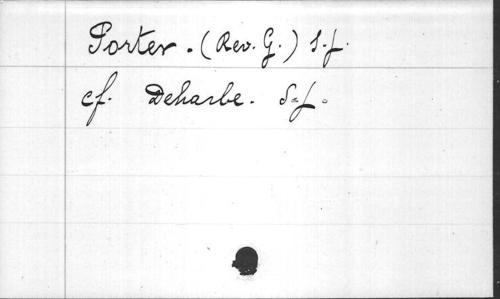 Porter. (Rev. G.) S.J.
cf. Deharbe. S.J.